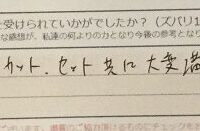 を受けられていかがでしたか?(ズバリ1
な感想が、私達の何よりの力となり今後の参考となり
カット、セット共に大変満